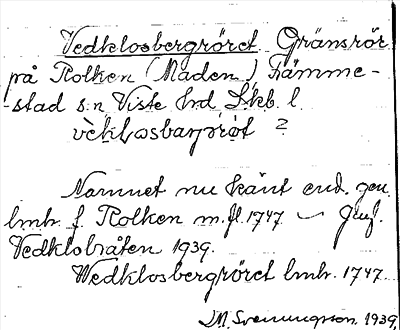 Vedklosbergröret Gränsrör
på Rolken (Maden) Främme-
-stad s:n Viste hrd Skb. l.
vèklosbarjröt 2
Namnet nu känt end. gen.
lmhr. f. Rolken m.fl. 1747 – Jmf.
Vedklobråten 1939.
Wedklosbergröret lmhr. 1747.
D.M. Svenningson. 1939.